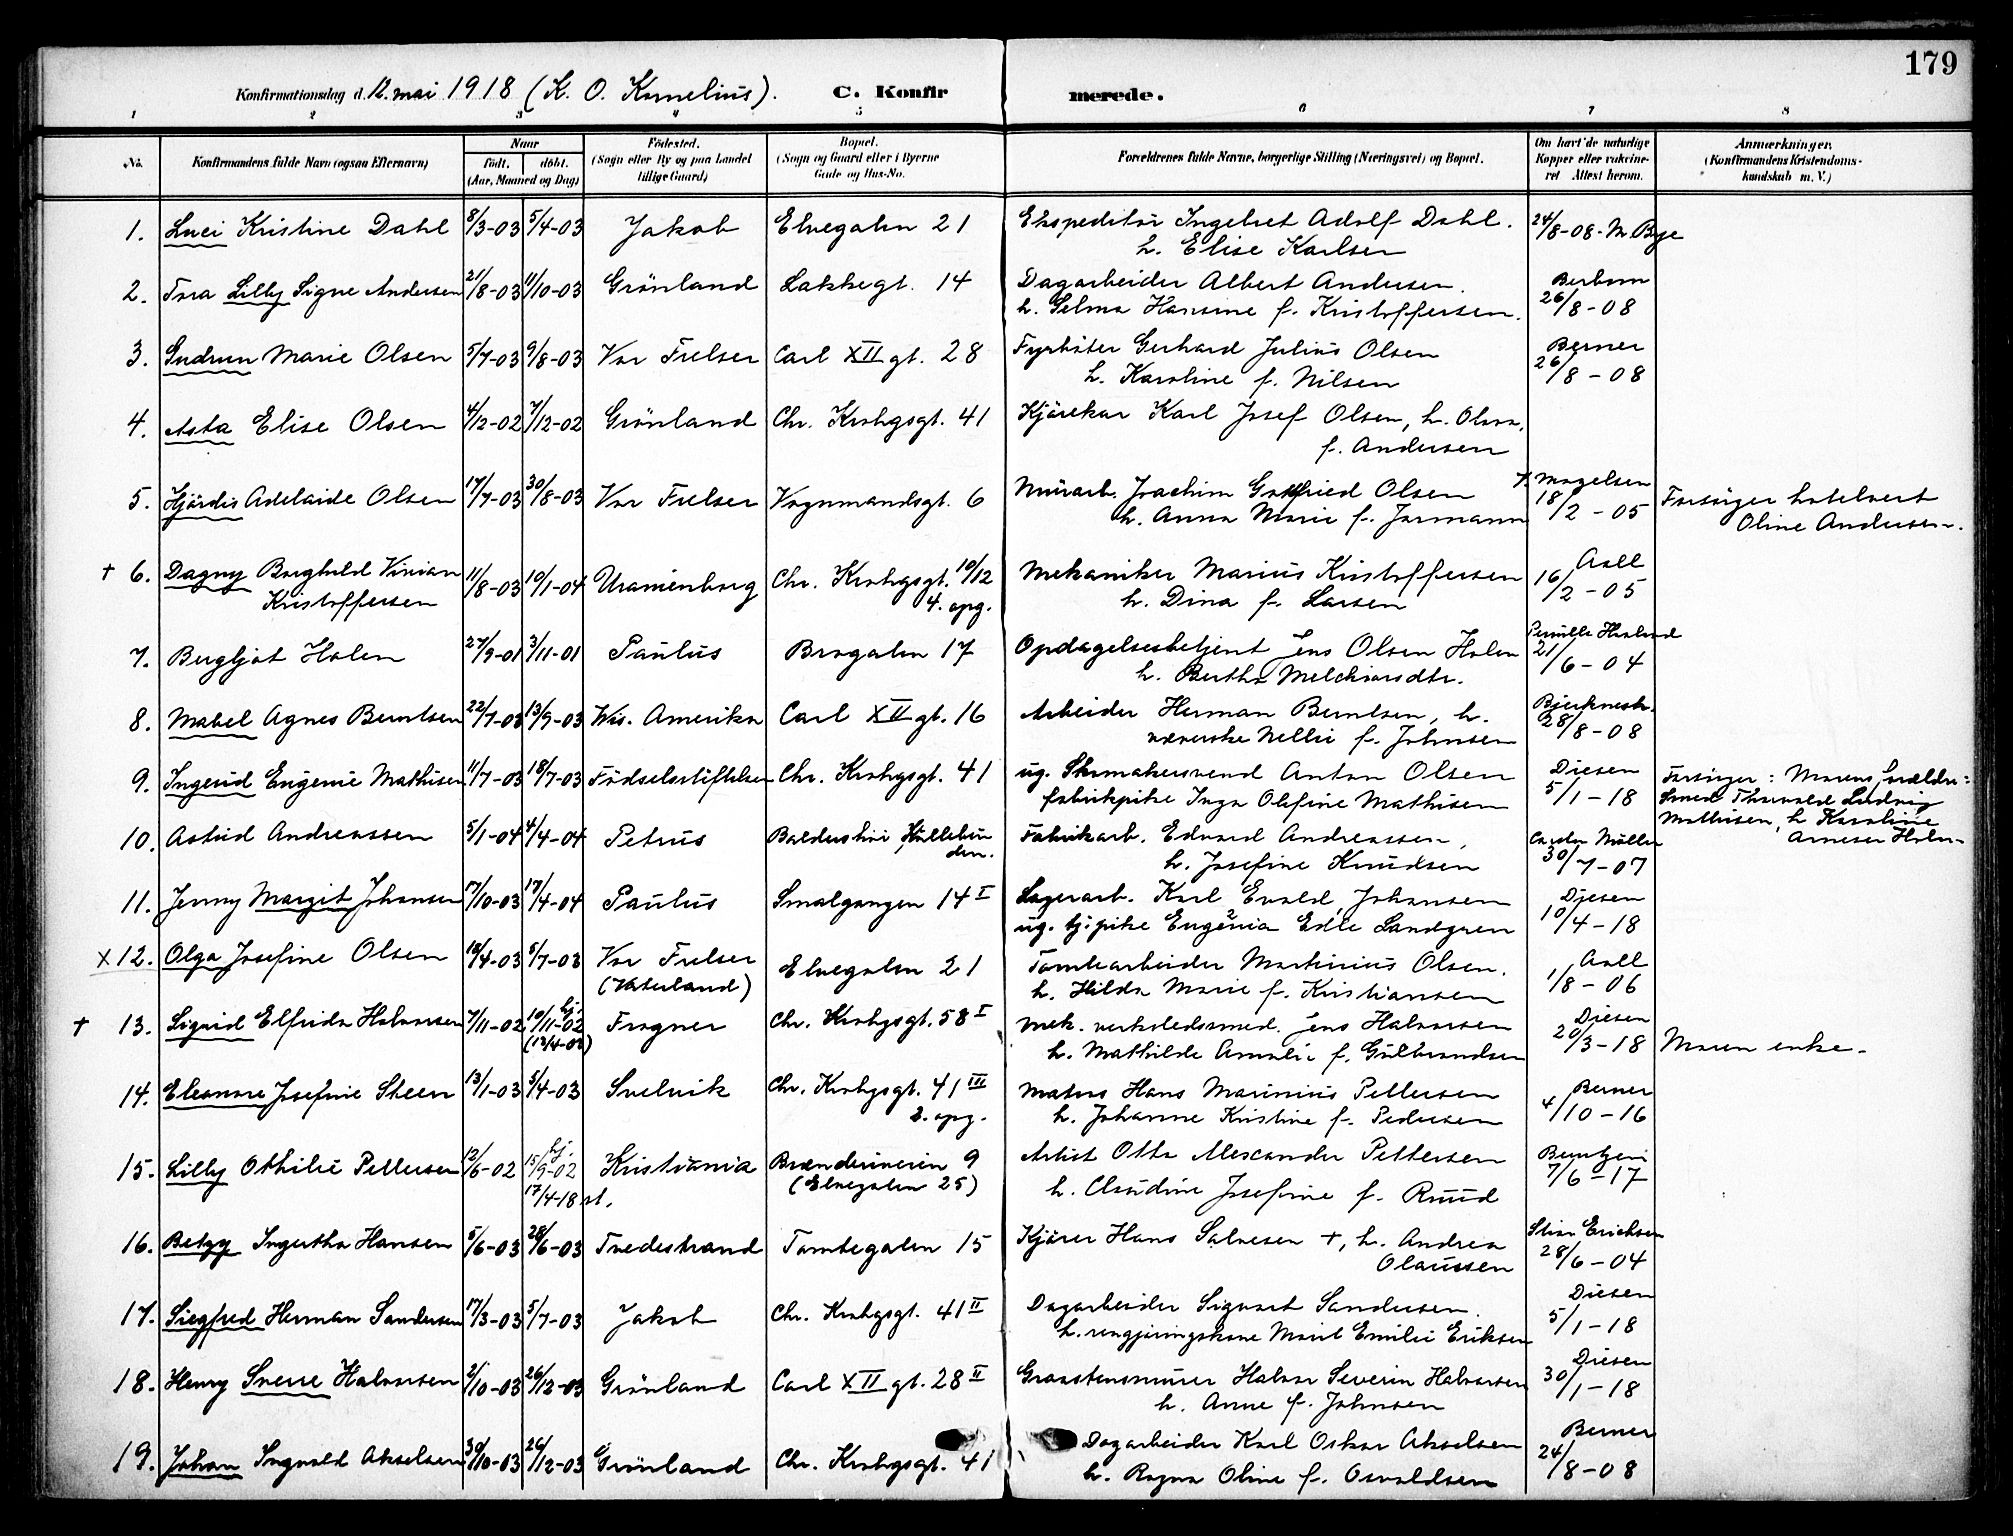 179
Konfirmationsdag d. 12. mai 1918 (K. O. Kornelius). C. Konfirmerede.
1 2 3 4 5 6 7 8
No. Konfirmandens fulde Navn (ogsaa Efternavn) Naar født. døbt. (Aar, Maaned og Dag) Fødested. (Sogn eller By og paa Landet tillige Gaard) Bopæl. (Sogn og Gaard eller i Byerne Gade og Hus-No. Forældrenes fulde Navne, borgerlige Stilling (Næringsvei) og Bopæl. Om havt de naturlige Kopper eller vakcineret. Attest herom. Anmærkninger. (Konfirmandens Kristendomskundskab m. V.)
1. Luci Kristine Dahl 8/3-03 5/4-03 Jakob Elvegaten 21 Ekspeditør Ingebret Adolf Dahl. 24/8-08. M. Bye
h. Elise Karlsen
2. Tora Lilly Signe Andersen 21/8-03 11/10-03 Grønland Lakkegt. 14 Dagarbeider Albert Andersen.
h. Selma Hansine f. Kristoffersen. 26/8-08
3. Gudrun Marie Olsen 5/7-03 9/8-03 Vor Frelser Carl XII gt. 28 Fyrbøter Gerhard Julius Olsen Berner
h. Karoline f. Nilsen 26/8-08
4. Asta Elise Olsen 4/12-02 7/12-02 Grønland Chr. Krohgsgt. 41 Kjørekar Karl Josef Olsen, h. Olava,
f. Andersen
5. Hjørdis Adelaide Olsen 17/7-03 30/8-03 Vor Frelser Vognmandsgt. 6 Murarb. Joachim Gottfried Olsen Magelsen
h. Anna Marie f. Jarmann 18/2-05 Forsørger hotelvert
Oline Andersen.
† 6. Dagny Borghild Vivian 11/8-03 10/1-04 Uranienborg Chr. Krohgsgt. 10/12 Mekaniker Marius Kristoffersen Aall
Kristoffersen 4. opg. h. Dina f. Larsen 16/2-05
7. Bergljot Holen 27/9-01 3/11-01 Paulus Brogaten 17 Opdagelsesbetjent Jens Olsen Holen Pernille
h. Bertha Melchiorsdtr. 21/6-04
8. Mabel Agnes Berntsen 22/7-03 13/9-03 Wis. Amerika Carl XII gt. 16 Arbeider Herman Berntsen, h.
væverske Nelli f. Johnsen 28/8-08
9. Ingerid Eugenie Mathisen 11/7-03 18/7-03 Fødselsstiftelsen Chr. Krohgsgt. 41 ug. Skomakersvend Anton Olsen Diesen Forsørger: Morens forældre:
fabrikpike Inga Olefine Mathisen 5/1-18 Smed Thorvald Ludvig
Mathisen, h. Karoline
10. Astrid Andreassen 5/1-04 4/4-04 Petrus Fabrikarb. Edvard Andreassen, Møller
h. Josefine Knudsen 30/7-07
11. Jenny Margit Johansen 17/10-03 17/4-04 Paulus Smalgangen 14 I Lagerarb. Karl Evald Johansen Diesen
ug. tj.pike Eugenia Edle Landgren 10/4-18
x 12. Olga Josefine Olsen 18/4-03 5/7-03 Vor Frelser Elvegaten 21 Tomtearbeider Martinius Olsen. Aall
(Vaterland) h. Hilda Marie f. Kristiansen 1/8-06
† 13. Sigrid Elfrida Halvorsen 7/11-02 hj. 10/11-02 Frogner Chr. Krohgsgt. 58 I Mek. verkstedsmed. Jens Halvorsen Diesen
h. Mathilde Amalie f. Gulbrandsen 20/3-18 Moren enke.
14. Eleonore Josefine Steen 13/1-03 5/4-03 Svelvik Chr. Krohgsgt. 41 III Matros Hans Marinius Pettersen Berner
2. opg. h. Johanne Kristine f. Pedersen 4/10-16
15. Lilly Othilie Pettersen 12/6-02 hj. 15/9-02 Kristiania Brænderiveien 9 Artist Otto Alexander Pettersen
17/4-18 st. (Elvegaten 25) h. Claudine Josefine f. Ruud 7/6-17
16. Betzy Ingertha Hansen 5/6-03 28/6-03 Tvedestrand Tomtegaten 15 Kjører Hans Salvesen +, h. Andrea Erichsen
Olaussen 28/6-04
17. Siegfred Herman Sandersen 17/3-03 5/7-03 Jakob Chr. Krohgsgt. 41 II Dagarbeider Sigvart Sandersen. Diesen
h. rengjøringskone Marit Emilie Eriksen 5/1-18
18. Henry Sverre Halvorsen 2/10-03 26/12-03 Grønland Carl XII gt. 28 II Graastensmurer Halvor Severin Halvorsen Diesen
h. Anne f. Johnsen 30/1-18
19. Johan Ingvald Akselsen 30/10-03 26/12-03 Grønland Chr. Krohgsgt. 41 Dagarbeider Karl Oskar Akselsen Berner
h. Ragna Oline f. Osvaldsen 24/8-08